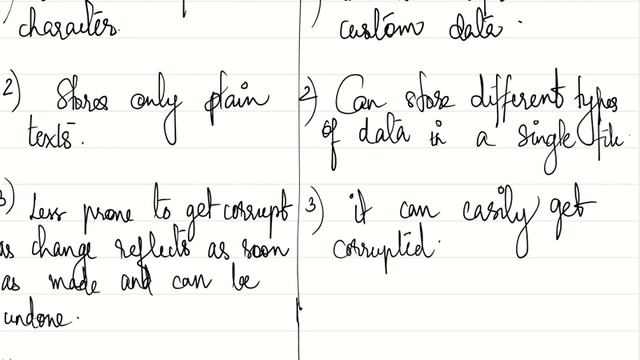 character.
2) Stores only plain
texts.
3) Less prone to get corrupt
as change reflects as soon
as made and can be
undone.
custom data.
2) Can store different types
of data in a single file.
3) it can easily get
corrupted.